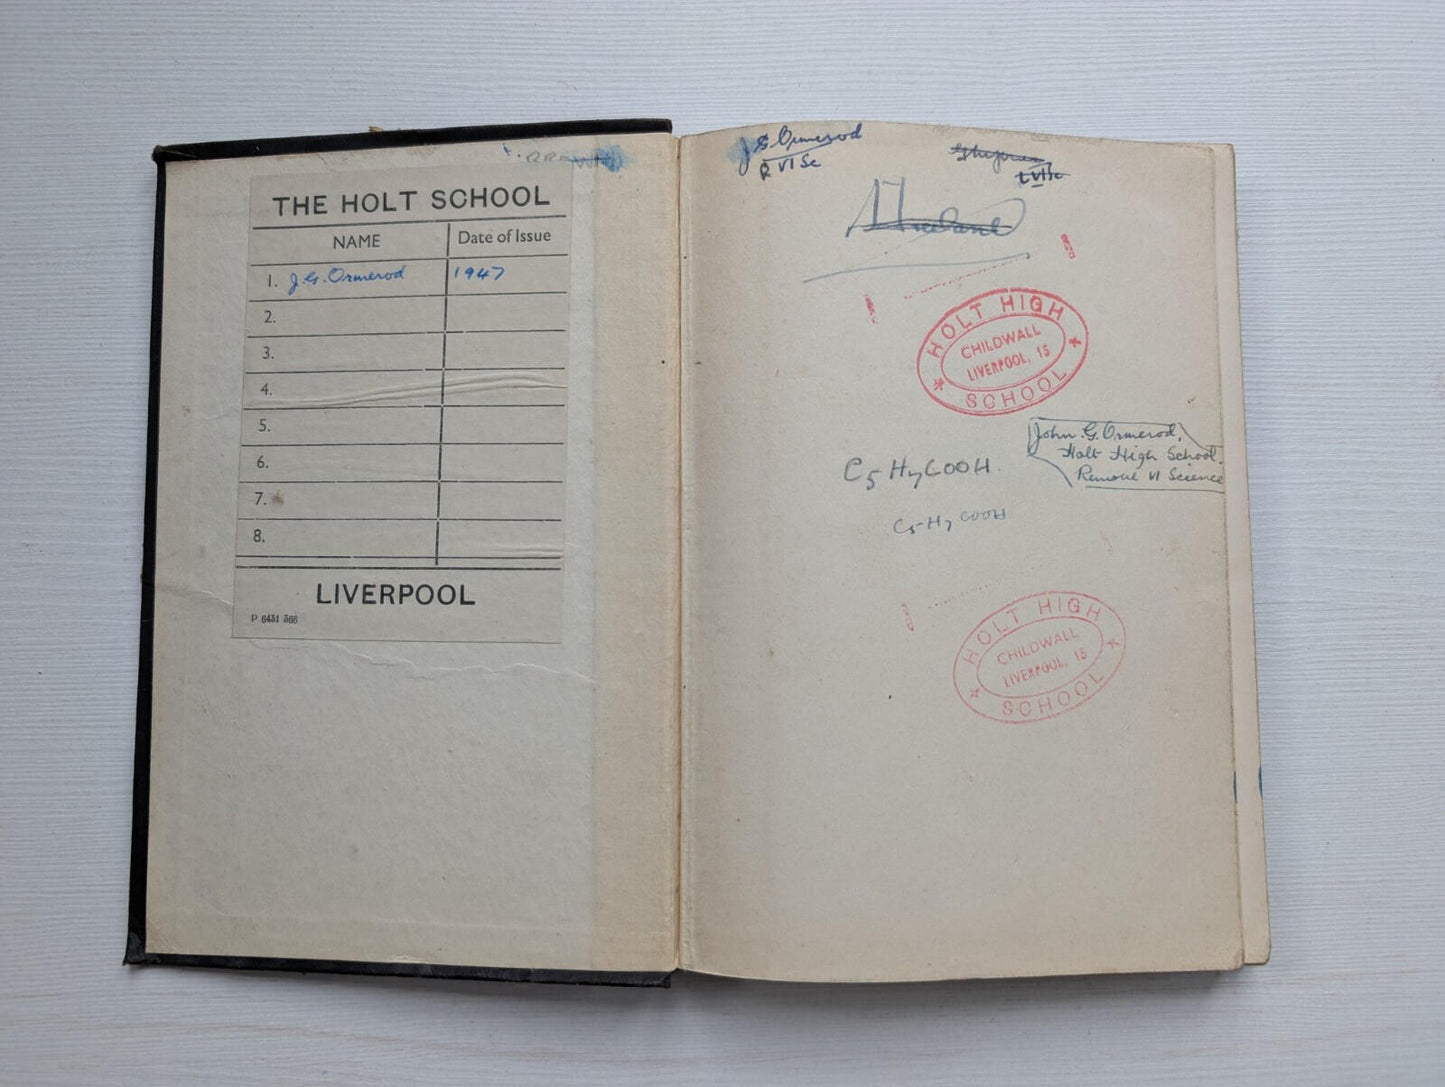 THE HOLT SCHOOL
NAME Date of Issue
1. J.G. Ormerod 1947
2.
3.
4.
5.
6.
7.
8.
LIVERPOOL
P 6451 366
J G Ormerod
R VI Sc
L VI Sc
HOLT HIGH SCHOOL
CHILDWALL
LIVERPOOL, 15
John. G. Ormerod,
Holt High School.
Remove VI Science
C5 H7 COOH.
C5 H7 COOH
HOLT HIGH SCHOOL
CHILDWALL
LIVERPOOL, 15